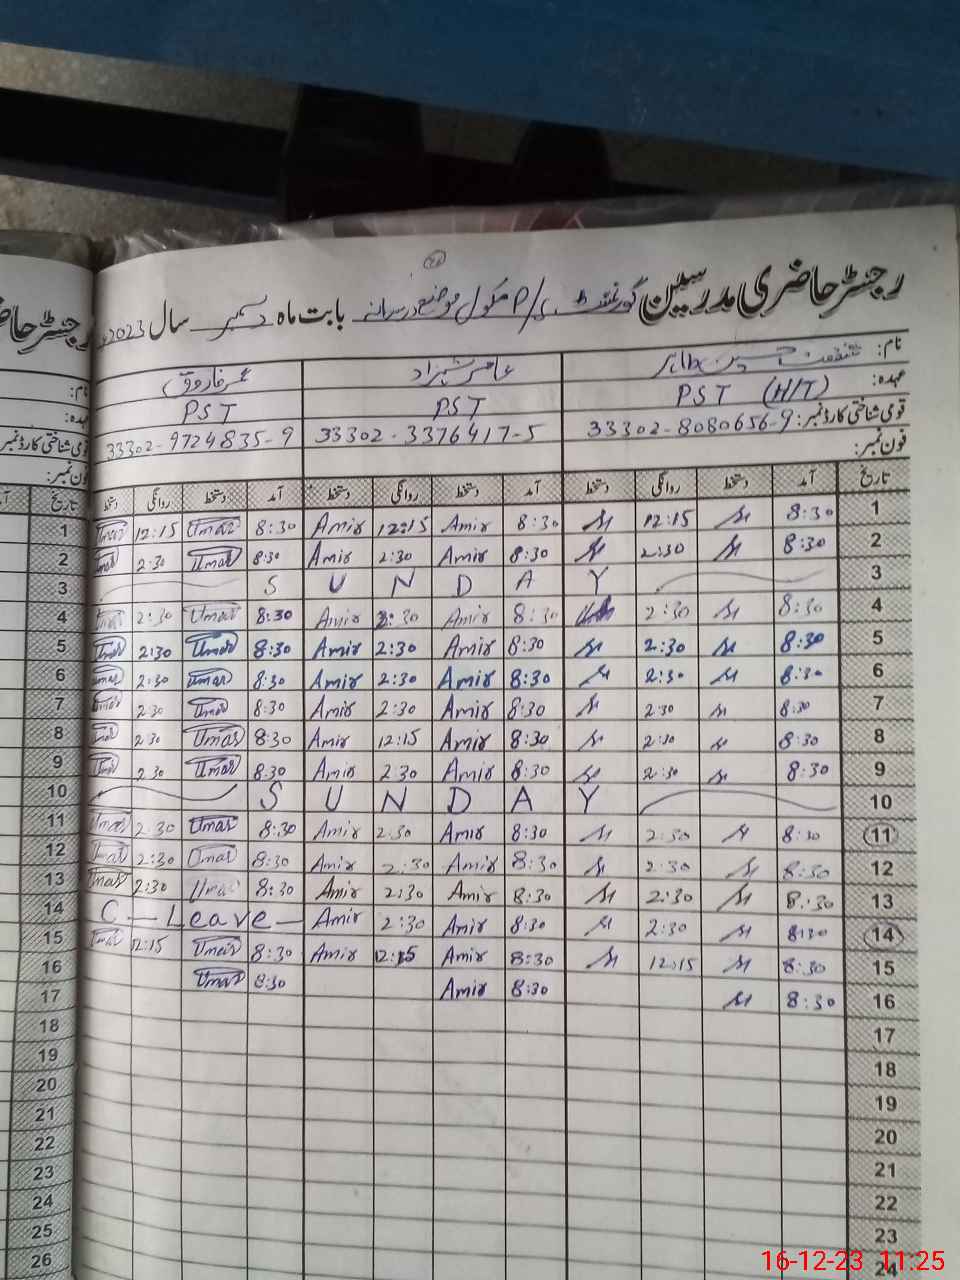 رجسٹر حاضری مدرسین گورنمنٹ P/ سکول موضع بابت ماہ دسمبر سال 2023ء
نام: شفقت حسین طاہر عامر شہزاد عمر فاروق
عہدہ: PST (H/T) PST PST
قومی شناختی کارڈ نمبر: 33302-8080656-9 33302-3376417-5 33302-9724835-9
فون نمبر:
تاریخ آمد دستخط روانگی دستخط آمد دستخط روانگی دستخط آمد دستخط روانگی دستخط
1 8:30 12:15 8:30 Amir 12:15 Amir 8:30 Umar 12:15 Umar
2 8:30 2:30 8:30 Amir 2:30 Amir 8:30 Umar 2:30 Umar
3 SUNDAY
4 8:30 2:30 8:30 Amir 2:30 Amir 8:30 Umar 2:30 Umar
5 8:30 2:30 8:30 Amir 2:30 Amir 8:30 Umar 2:30 Umar
6 8:30 2:30 8:30 Amir 2:30 Amir 8:30 Umar 2:30 Umar
7 8:30 2:30 8:30 Amir 2:30 Amir 8:30 Umar 2:30 Umar
8 8:30 2:30 8:30 Amir 12:15 Amir 8:30 Umar 2:30 Umar
9 8:30 2:30 8:30 Amir 2:30 Amir 8:30 Umar 2:30 Umar
10 SUNDAY
11 8:30 2:30 8:30 Amir 2:30 Amir 8:30 Umar 2:30 Umar
12 8:30 2:30 8:30 Amir 2:30 Amir 8:30 Umar 2:30 Umar
13 8:30 2:30 8:30 Amir 2:30 Amir 8:30 Umar 2:30 Umar
14 8:30 2:30 8:30 Amir 2:30 Amir C-Leave-
15 8:30 12:15 8:30 Amir 12:15 Amir 8:30 Umar 12:15 Umar
16 8:30 8:30 Amir 8:30 Umar
17
18
19
20
21
22
23
24
رجسٹر حاضری
نام:
عہدہ:
قومی شناختی کارڈ نمبر
فون نمبر:
تاریخ
1
2
3
4
5
6
7
8
9
10
11
12
13
14
15
16
17
18
19
20
21
22
23
24
25
26
16-12-23 11:25